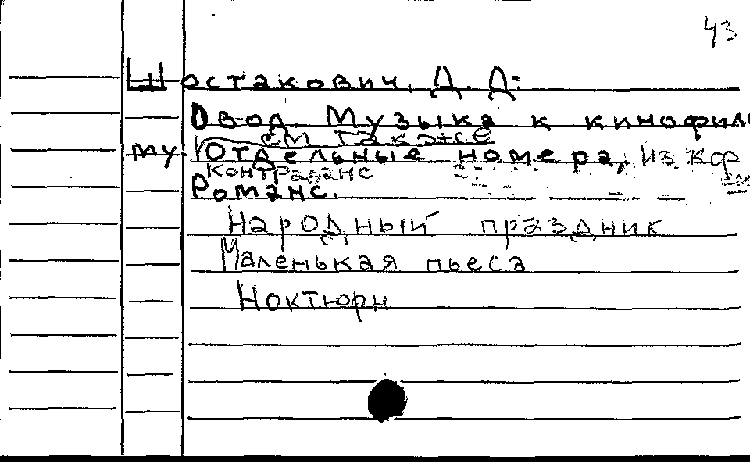 43
Шостакович, Д. Д.
Овод. Музыка к кинофиль
см также
му Отдельные номера, Из кор
контраданс
Романс.
Народный праздник
Маленькая пьеса
Ноктюрн